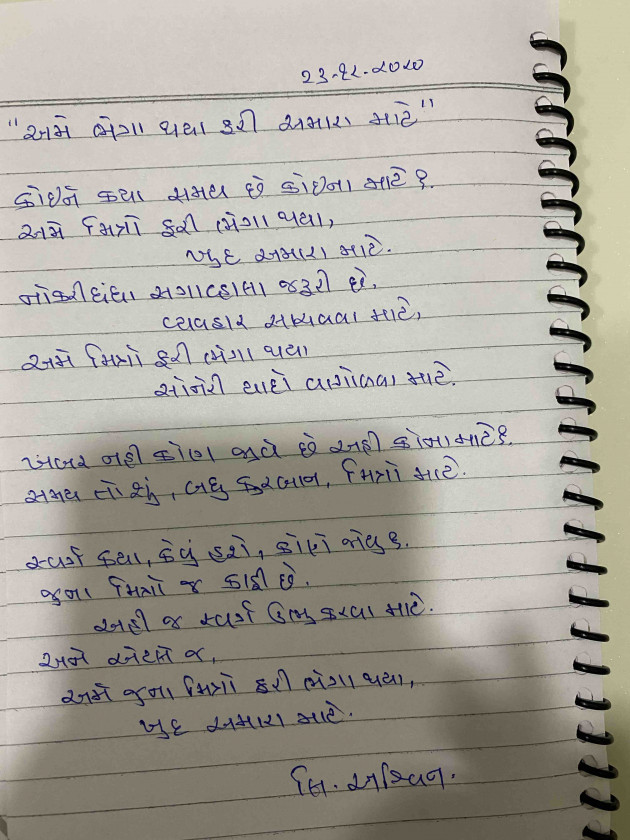 ૨૩-૧૨-૨૦૨૦
"અમે ભેગા થયા ફરી અમારા માટે"
કોઇને ક્યા સમય છે કોઇના માટે ?.
અમે મિત્રો ફરી ભેગા થયા,
ખુદ અમારા માટે.
નોકરીધંધા સગાવ્હાલા જરૂરી છે.
વ્યવહાર સાચવવા માટે,
અમે મિત્રો ફરી ભેગા થયા
સોનેરી યાદો વાગોળવા માટે.
ખબર નહી કોણ જીવે છે અહી કોના માટે ?.
સમય તો શું, બધુ કુરબાન, મિત્રો માટે.
સ્વર્ગ ક્યા, કેવું હશે, કોણે જોયુ ?.
જુના મિત્રો જ કાફી છે.
અહી જ સ્વર્ગ ઉભુ કરવા માટે.
અને એટલે જ,
અમે જુના મિત્રો ફરી ભેગા થયા,
ખુદ અમારા માટે.
લિ. અશ્વિન.